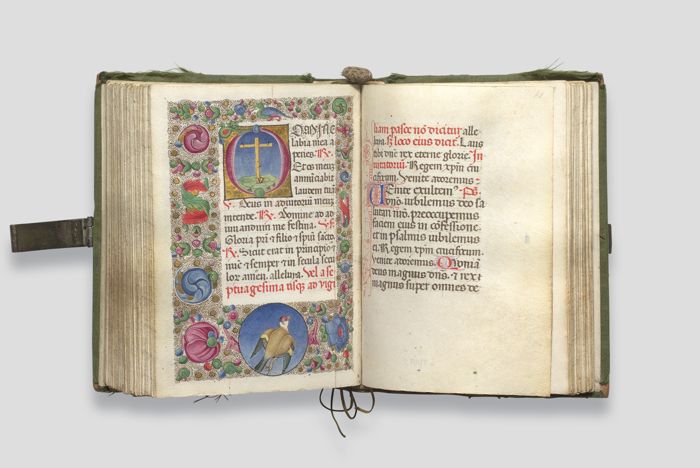 Domine
labia mea a
peries. R.
Et os meuz
annūciabit
laudem tuā
V. Deus in adiutoriū meuz
intende. R. Domine ad ad
iuuandum me festina. V.
Gloria pri & filio & spūi sancto
R. Sicut erat in principio &
nūc & semper & in secula secu
lor amen. alleluia. Vel a se
ptuagesima usq; ad vigi
liam pasce nō dicitur alle
luia. S; loco eius dicit. Laus
tibi dnē rex eterne glorie. In
uitatoriū. Regem xpm cru
cifixum. Venite adoremus.
Venite exultem9 Ps.
dnō. iubilemus deo sa
lutari nrō. preoccupemus
faciem eius in cōfessione.
et in psalmis iubilemus
ei. Regem xpm crucifixum.
Venite adoremus. Quoniā
deus magnus dns. & rex
magnus super omnes de